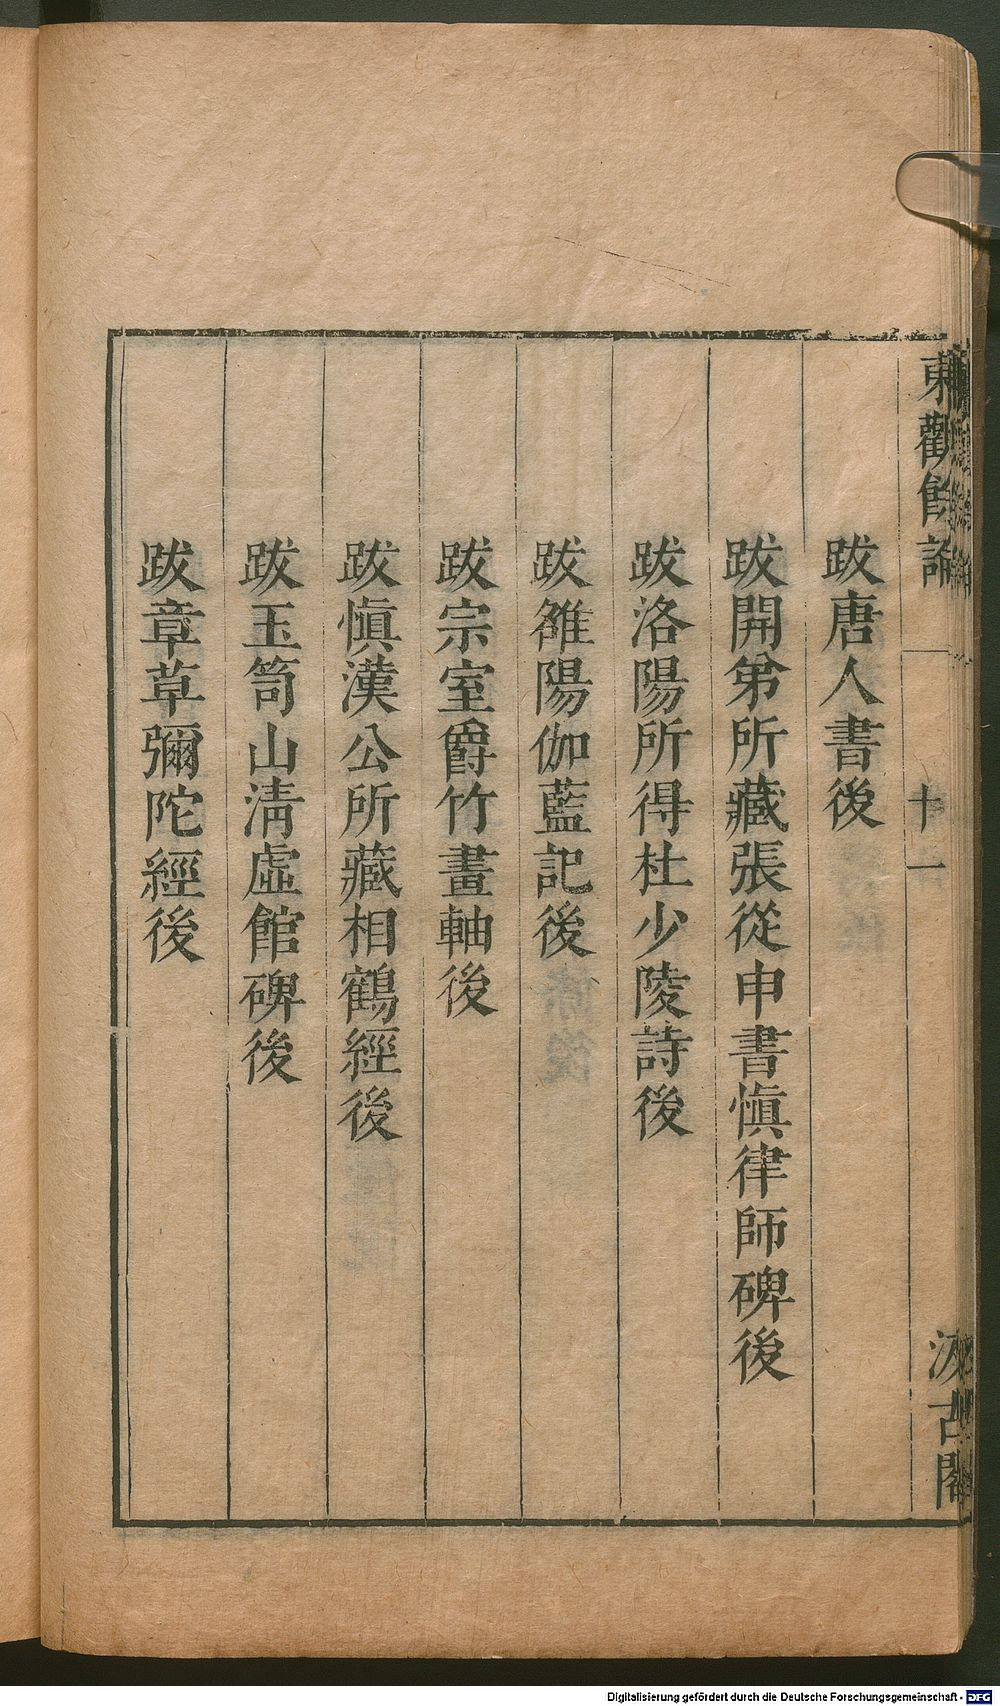 東觀餘論
十一
汲古閣
跋唐人書後
跋開弟所藏張從申書愼律師碑後
跋洛陽所得杜少陵詩後
跋雒陽伽藍記後
跋宗室爵竹畫軸後
跋愼漢公所藏相鶴經後
跋玉笥山淸虛館碑後
跋章草彌陀經後
Digitalisierung gefördert durch die Deutsche Forschungsgemeinschaft - DFG